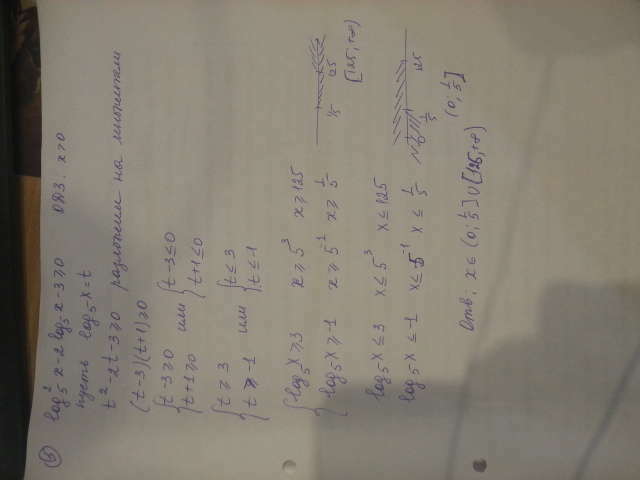 ⑥ log₅² x - 2 log₅ x - 3 ≥ 0 ОДЗ: x > 0
пусть log₅ x = t
t² - 2t - 3 ≥ 0 разложим на множители
(t-3)(t+1) ≥ 0
{t-3 ≥ 0 или {t-3 ≤ 0
{t+1 ≥ 0 {t+1 ≤ 0
{t ≥ 3 или {t ≤ 3
{t ≥ -1 {t ≤ -1
{log₅ x ≥ 3 x ≥ 5³ x ≥ 125
{log₅ x ≥ -1 x ≥ 5⁻¹ x ≥ 1/5
1/5 125
[125; +∞)
log₅ x ≤ 3 x ≤ 5³ x ≤ 125
log₅ x ≤ -1 x ≤ 5⁻¹ x ≤ 1/5
0 1/5 125
(0; 1/5]
Отв: x ∈ (0; 1/5] ∪ [125; +∞)